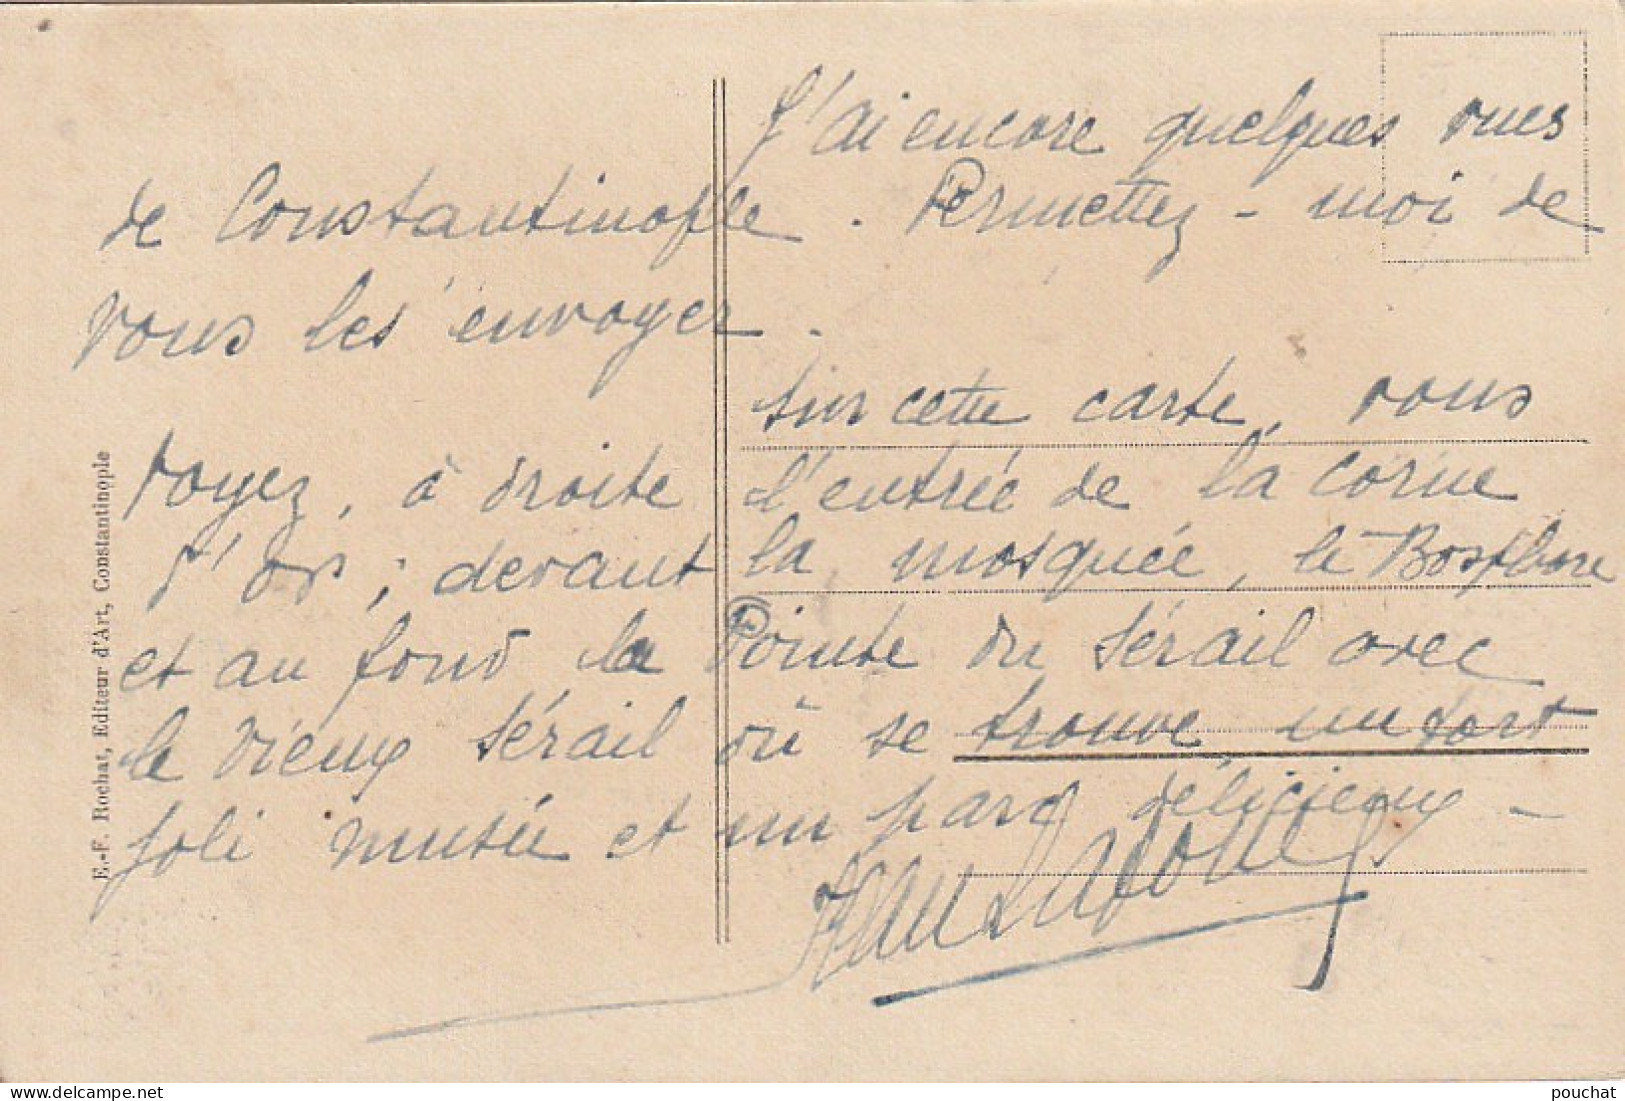 J'ai encore quelques vues
de Constantinople. Permettez-moi de
vous les envoyer.
Sur cette carte, vous
voyez, à droite l'entrée de la corne
d'or ; devant la mosquée, le Bosphore
et au fond la Pointe du Sérail avec
le vieux Sérail où se trouve un fort
joli musée et un parc délicieux -
Jean
E.-F. Rochat, Editeur d'Art, Constantinople
https://www.delcampe.net
pouchat